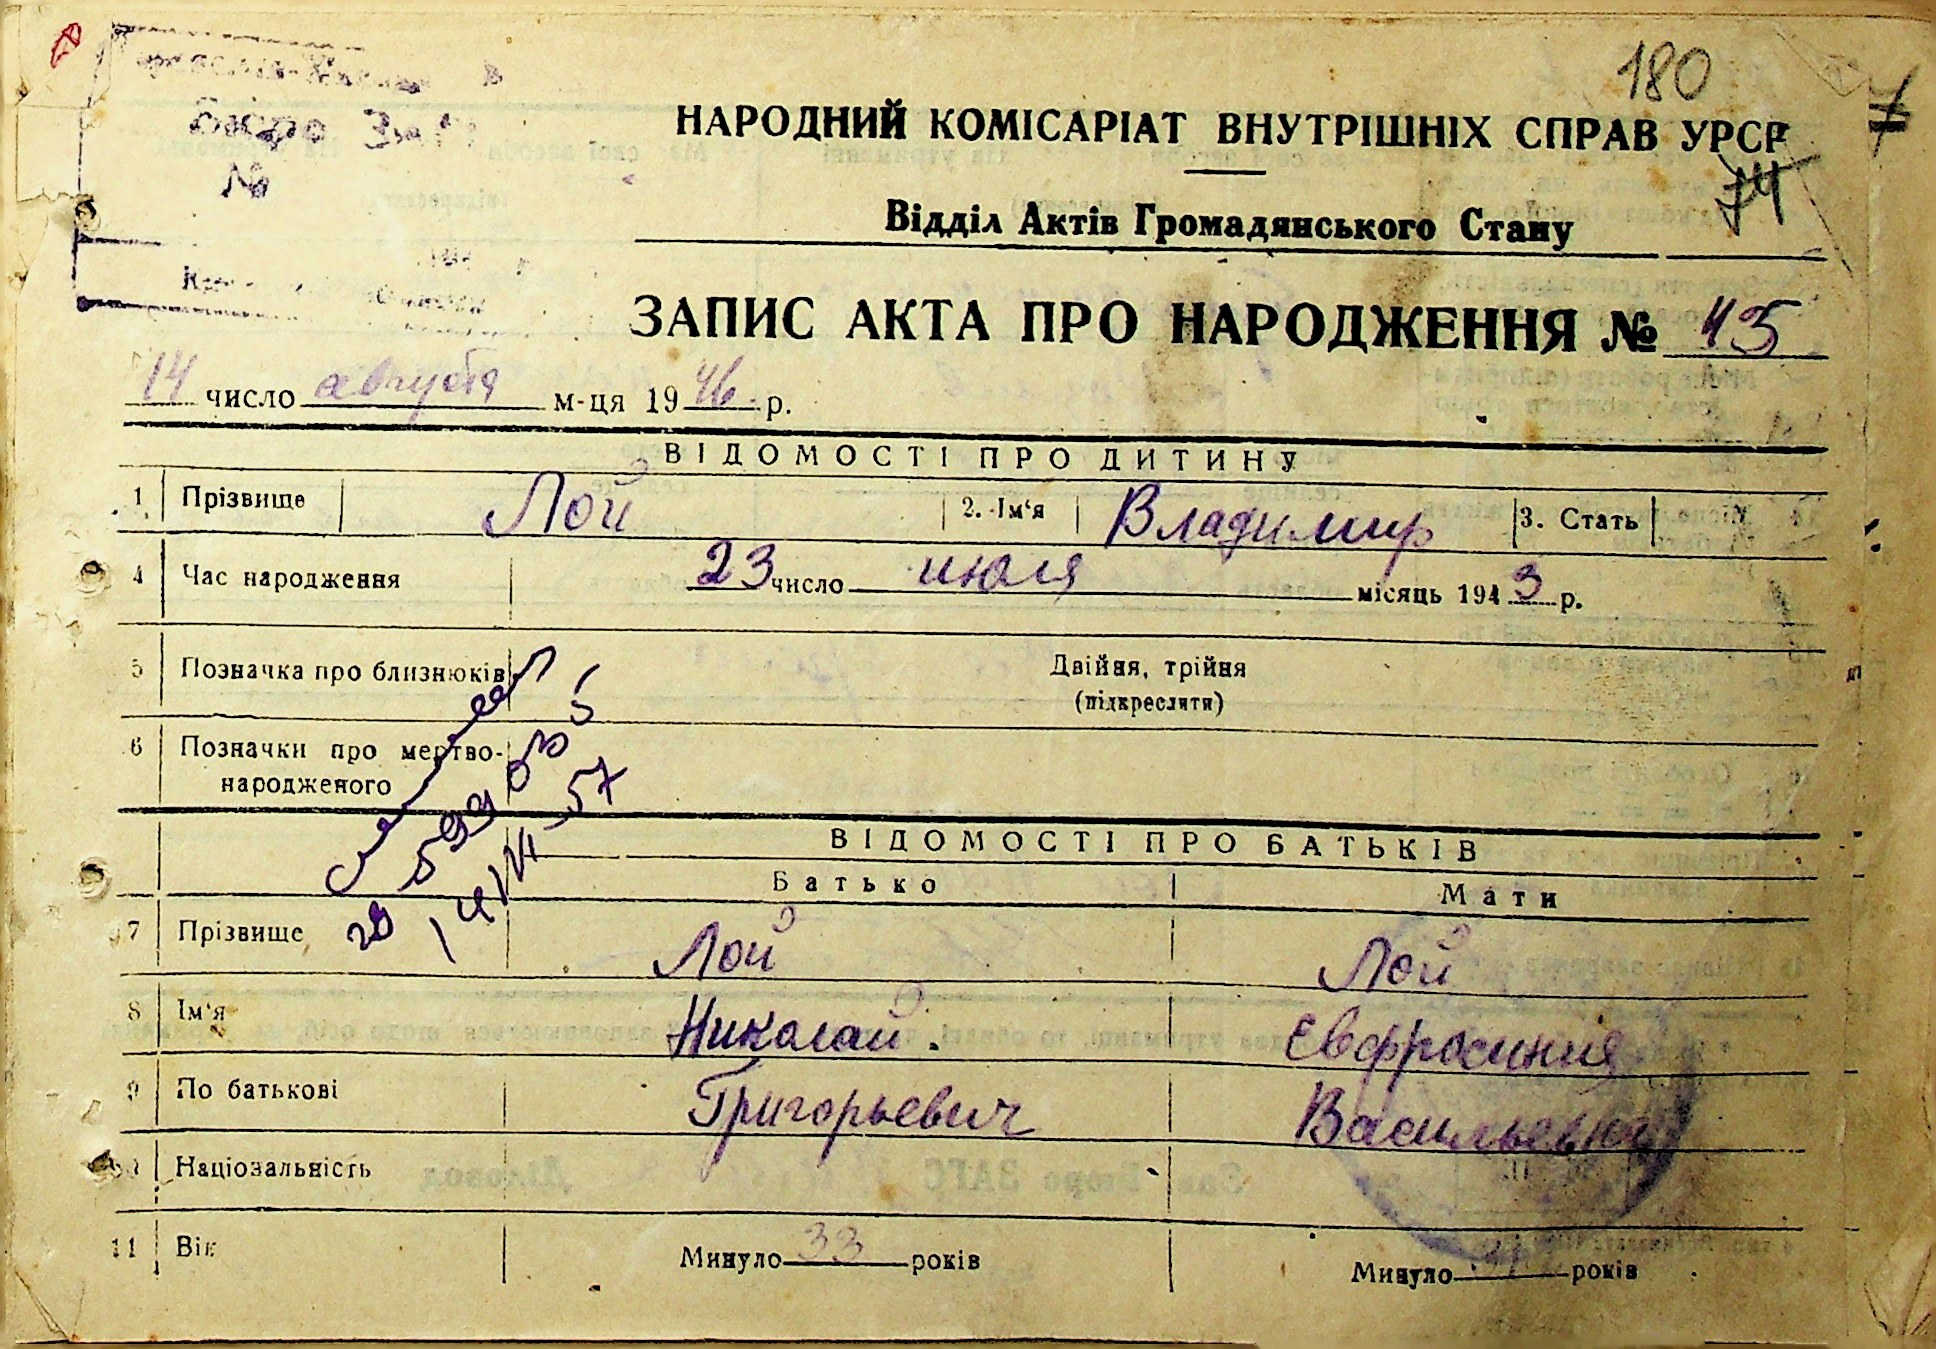 180
7
Бюро
№
НАРОДНИЙ КОМІСАРІАТ ВНУТРІШНІХ СПРАВ УРСР
74
Відділ Актів Громадянського Стану
ЗАПИС АКТА ПРО НАРОДЖЕННЯ № 45
14 число августа м-ця 1946 р.
ВІДОМОСТІ ПРО ДИТИНУ
1 Прізвище Лой 2. Ім‘я Владимир 3. Стать
4 Час народження 23 число июля місяць 1943 р.
5 Позначка про близнюків Двійня, трійня
(підкреслити)
6 Позначки про мертво-
народженого
57
ВІДОМОСТІ ПРО БАТЬКІВ
Батько Мати
7 Прізвище Лой Лой
8 Ім‘я Николай Евфросиния
9 По батькові Григорьевич Васильевна
10 Національність
11 Вік Минуло 33 років Минуло років